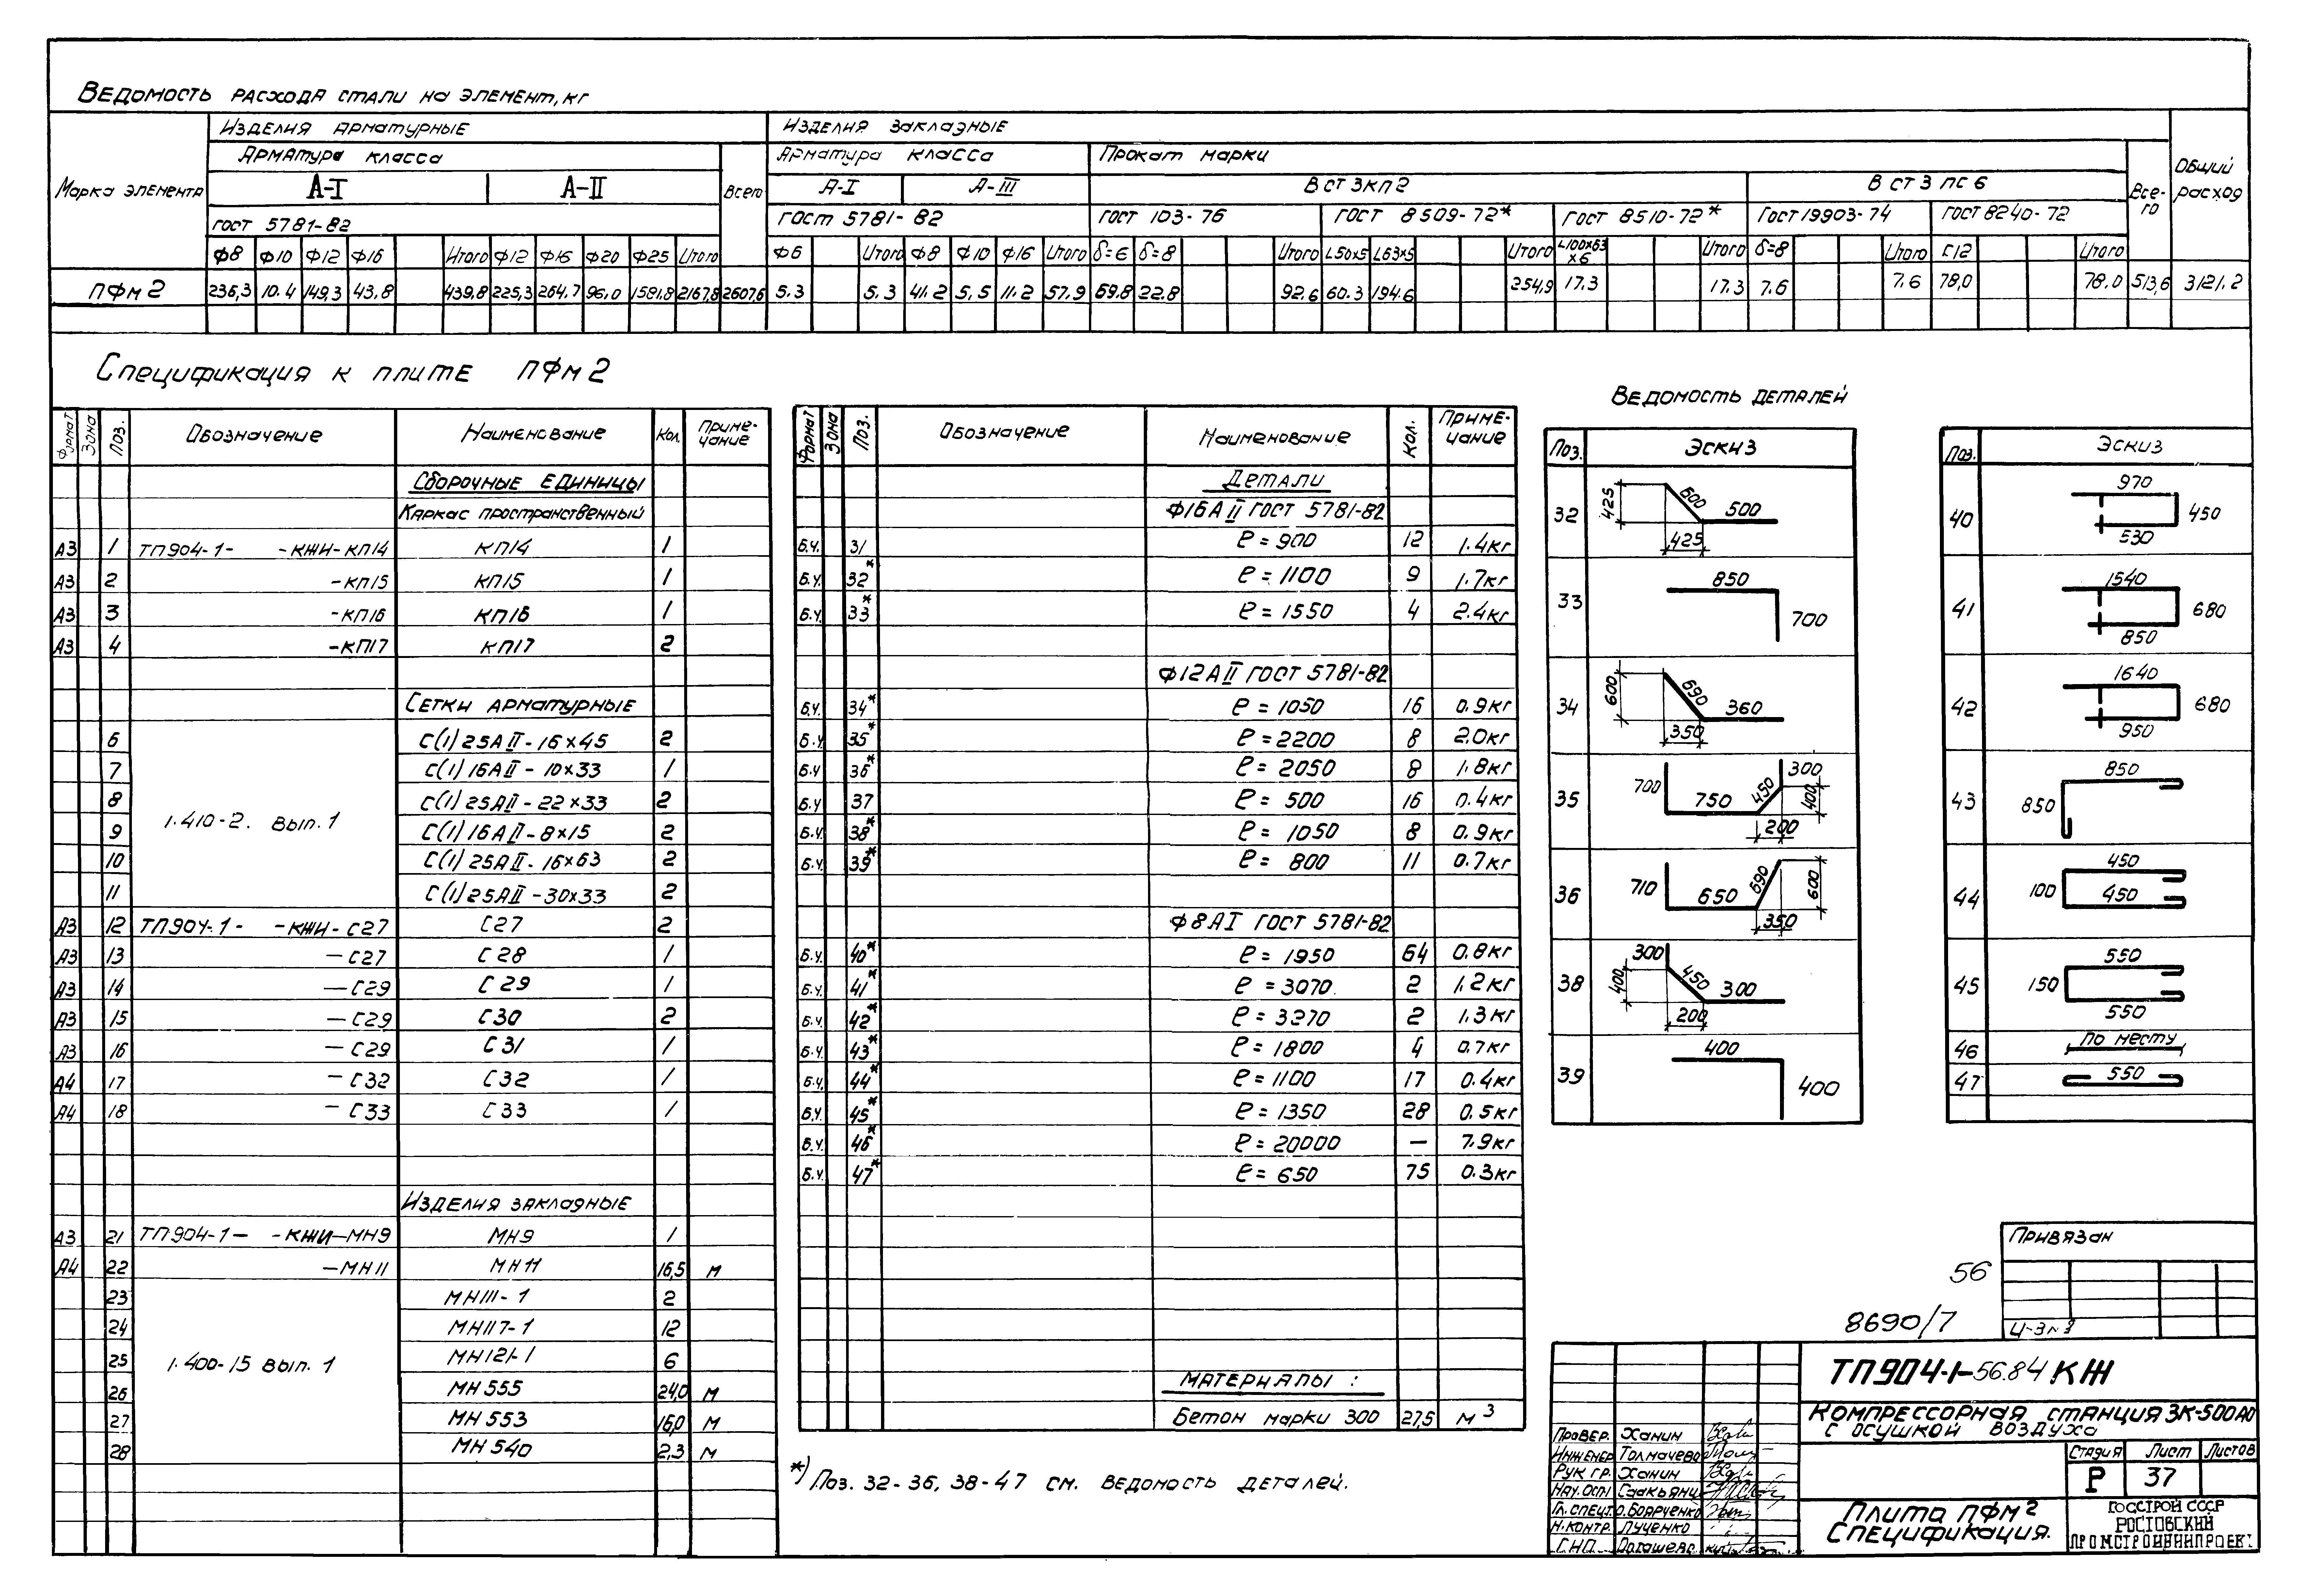 Ведомость расхода стали на элемент, кг
Марка элемента
Изделия арматурные
Изделия закладные
Общий расход
Арматура класса
Всего
Арматура класса
Прокат марки
Все-го
А-I
А-II
А-I
А-III
В ст 3кп2
В ст 3 пс 6
ГОСТ 5781-82
ГОСТ 5781-82
ГОСТ 103-76
ГОСТ 8509-72*
ГОСТ 8510-72*
ГОСТ 19903-74
ГОСТ 8240-72
Ф8 Ф10 Ф12 Ф16 Итого Ф12 Ф16 Ф20 Ф25 Итого Ф6 Итого Ф8 Ф10 Ф16 Итого δ=6 δ=8 Итого L50х5 L63х5 Итого L100х63х6 Итого δ=8 Итого С12 Итого
ПФм2 236,3 10.4 149,3 43,8 439,8 225,3 264,7 96,0 1581,8 2167,8 2607,6 5.3 5.3 41.2 5,5 11.2 57.9 69.8 22.8 92.6 60.3 194.6 254,9 17.3 17.3 7.6 7.6 78,0 78,0 513,6 3121.2
Спецификация к плите ПФм2
Формат Зона Поз. Обозначение Наименование Кол. Приме-чание
Сборочные единицы
Каркас пространственный
А3 1 ТП904-1- -КЖИ-КП14 КП14 1
А3 2 -КП15 КП15 1
А3 3 -КП16 КП16 1
А3 4 -КП17 КП17 2
Сетки арматурные
6 С(1)25АII-16×45 2
7 С(1)16АII-10×33 1
8 С(1)25АII-22×33 2
1.410-2. Вып.1
9 С(1)16АII-8×15 2
10 С(1)25АII-16×63 2
11 С(1)25АII-30×33 2
А3 12 ТП904-1- -КЖИ-С27 С27 2
А3 13 -С27 С28 1
А3 14 -С29 С29 1
А3 15 -С29 С30 2
А3 16 -С29 С31 1
А4 17 -С32 С32 1
А4 18 -С33 С33 1
Изделия закладные
А3 21 ТП904-1- -КЖИ-МН9 МН9 1
А4 22 -МН11 МН11 16,5 м
23 МН111-1 2
24 МН117-1 12
25 1.400-15 Вып.1 МН121-1 6
26 МН555 24,0 м
27 МН553 16,0 м
28 МН540 2,3 м
Формат Зона Поз. Обозначение Наименование Кол. Приме-чание
Детали
Ф16АII ГОСТ 5781-82
Б.Ч. 31 ℓ=900 12 1.4кг
Б.Ч. 32* ℓ=1100 9 1.7кг
Б.Ч. 33* ℓ=1550 4 2.4кг
Ф12АII ГОСТ 5781-82
Б.Ч. 34* ℓ=1050 16 0.9кг
Б.Ч. 35* ℓ=2200 8 2.0кг
Б.Ч 36* ℓ=2050 8 1.8кг
Б.Ч 37 ℓ=500 16 0.4кг
Б.Ч. 38* ℓ=1050 8 0.9кг
Б.Ч. 39* ℓ=800 11 0.7кг
Ф8АI ГОСТ 5781-82
Б.Ч. 40* ℓ=1950 64 0.8кг
Б.Ч. 41* ℓ=3070 2 1,2кг
Б.Ч. 42* ℓ=3270 2 1.3кг
Б.Ч. 43* ℓ=1800 4 0.7кг
Б.Ч. 44* ℓ=1100 17 0.4кг
Б.Ч. 45* ℓ=1350 28 0.5кг
Б.Ч. 46* ℓ=20000 — 7.9кг
Б.Ч. 47* ℓ=650 75 0.3кг
Материалы:
Бетон марки 300 27,5 м³
*) Поз. 32-36, 38-47 см. Ведомость деталей.
Ведомость деталей
Поз. Эскиз
32 425 600 500 425
33 850 700
34 600 690 360 350
35 700 750 450 300 400 200
36 710 650 690 600 350
38 300 400 450 300 200
39 400 400
Поз. Эскиз
40 970 450 530
41 1540 680 850
42 1640 680 950
43 850 850
44 450 100 450
45 550 150 550
46 По месту
47 550
56
8690/7
Привязан
ТП904-1-56.84 КЖ
Компрессорная станция 3К-500А0
с осушкой воздуха
Стадия Лист Листов
Р 37
Плита ПФм2
Спецификация.
Госстрой СССР
Ростовский
Промстройниипроект
Провер. Ханин
Инженер Толмачева
Рук гр. Ханин
Нач. осп1 Саакьянц
Гл. спец. О. Боярченко
Н. контр. Луценко